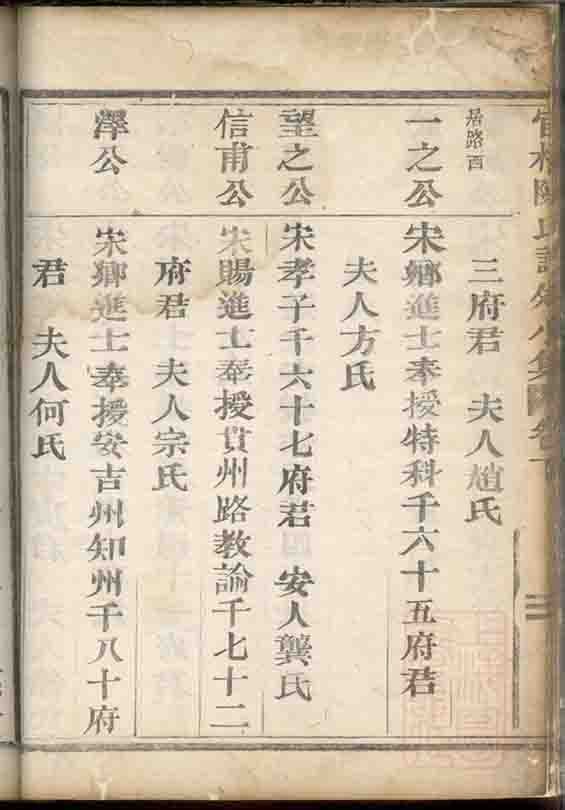 居路西
三府君　夫人趙氏
一之公
宋鄉進士奉授特科千六十五府君
夫人方氏
望之公
宋孝子千六十七府君　安人龔氏
信甫公
宋賜進士奉授貴州路教諭千七十二
府君　夫人宗氏
澤公
宋鄉進士奉授安吉州知州千八十府
君　夫人何氏